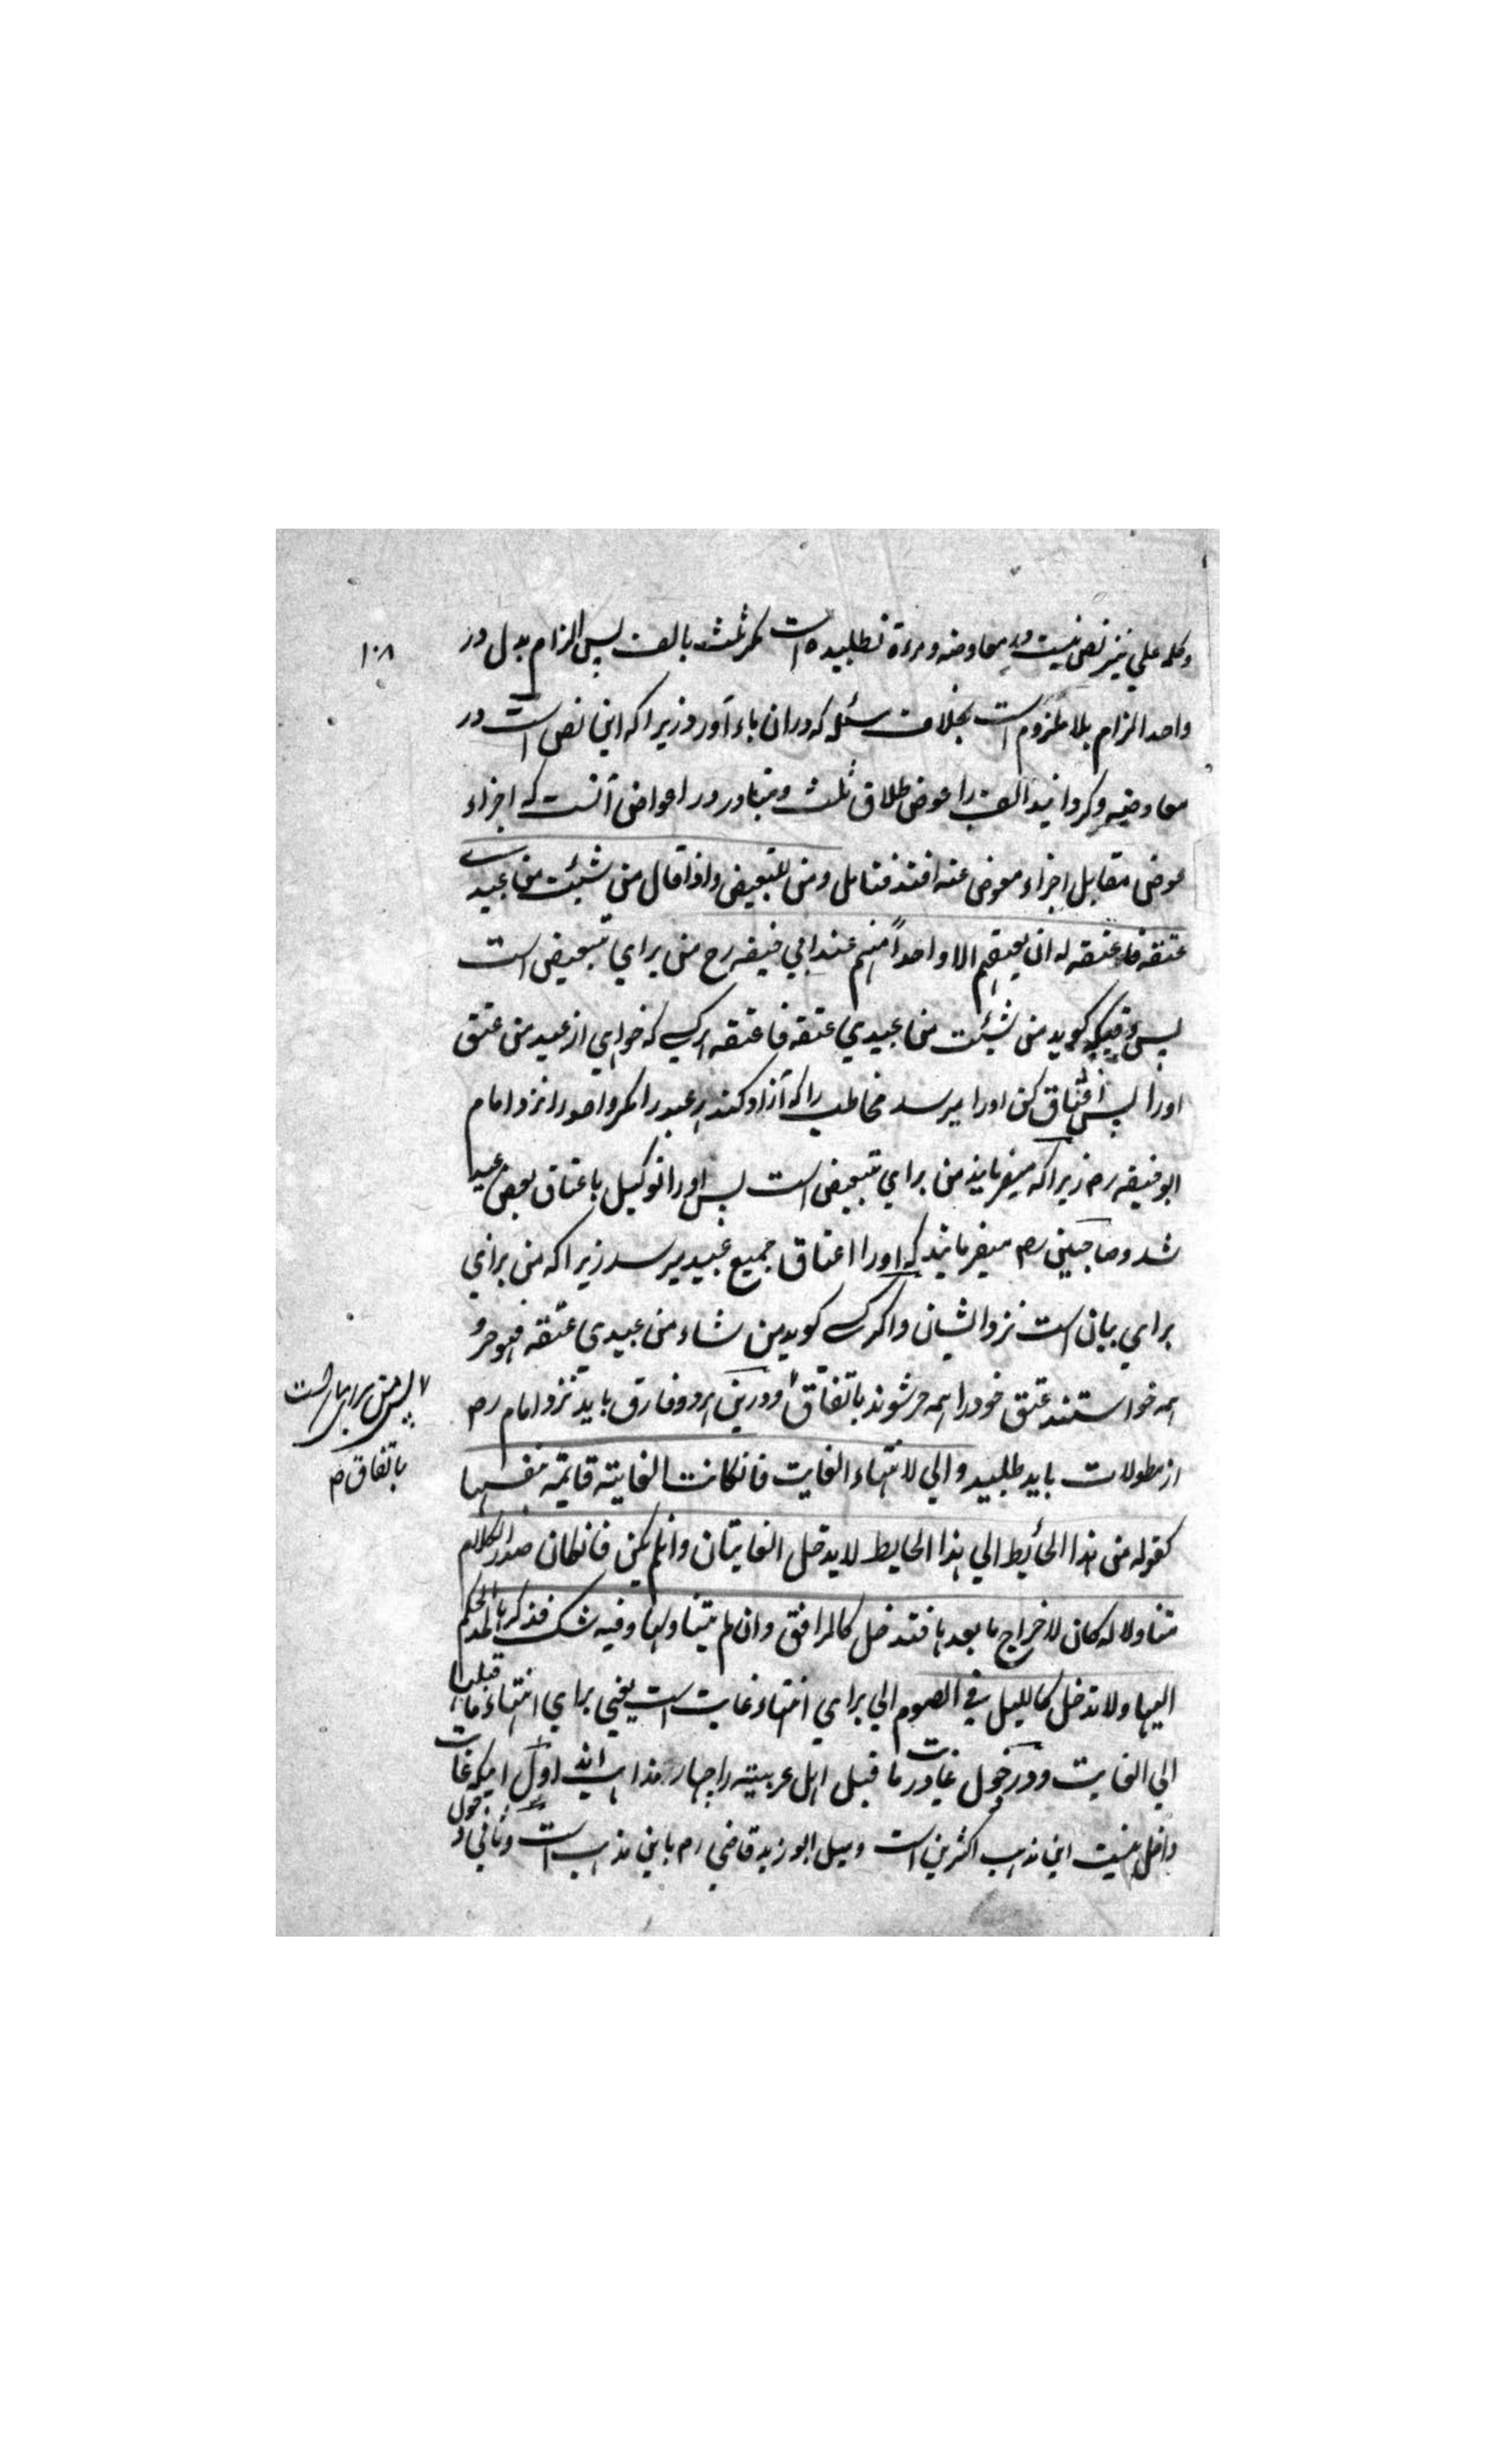 وکلمه علی نیز نص نیست در معاوضه ومرءة نطلبیده است مکر ثلث بالف پس الزام بدل در
واحد الزام بلا ملزوم است بخلاف مسئله که دران باء آورد زیرا که این نص است در
معاوضیه وکردانید الف را عوض طلاق ثلث ومتبادر در اعواض آنست که اجزاء
عوض مقابل اجزاء معوض عنه افتد فتامل ومن للتبعیض واذا قال من شئت من عبیدی
عتقه فاعتقه له ان یعتقهم الا واحداً منهم عند ابی حنیفه رح من برای تبعیض است
پس وقتیکه کوید من شئت من عبیدی عتقه فاعتقه هر کسی که خواهی از عبید من عتق
اورا پس اعتاق کن اورا میرسد مخاطب را که آزاد کند هر عبد را مکر واحد را نزد امام
ابو حنیفه رم زیرا که میفرمایند من برای تبعیض است پس اورا توکیل باعتاق بعض عبید
شد وصاحبین رم میفرمایند که اورا اعتاق جمیع عبید میرسد زیرا که من برای
برای بیان است نزد ایشان واکر کسی کوید من شاء من عبیدی عتقه فهو حر و
همه خواستند عتق خود را همه حر شوند باتفاق ودرین هر دو فارق باید نزد امام رم
پس من برای بیان است
باتفاق م
از مطولات باید طلبید والی لانتهاء الغایت فانکانت الغایته قایمة بنفسها
کقوله من هذا الحائط الی هذا الحایط لا یدخل الغایتان وانلم یکن فانکان صدر الکلام
متناولا له کان لاخراج ما بعدها فتدخل کالمرافق وان لم یتناولها وفیه شک فذکرها لمد الحکم
الیها ولا تدخل کاللیل فی الصوم الی برای انتهاء غایت است یعنی برای انتهاء ما قبلها
الی الغایت ودر دخول غایت در ما قبل اهل عربیته را چهار مذاهب اند اول اینکه غایت
داخل نیست این مذهب اکثرین است ومیل ابو زید قاضی رم باین مذهب است وثانی دخول
۱۰۸